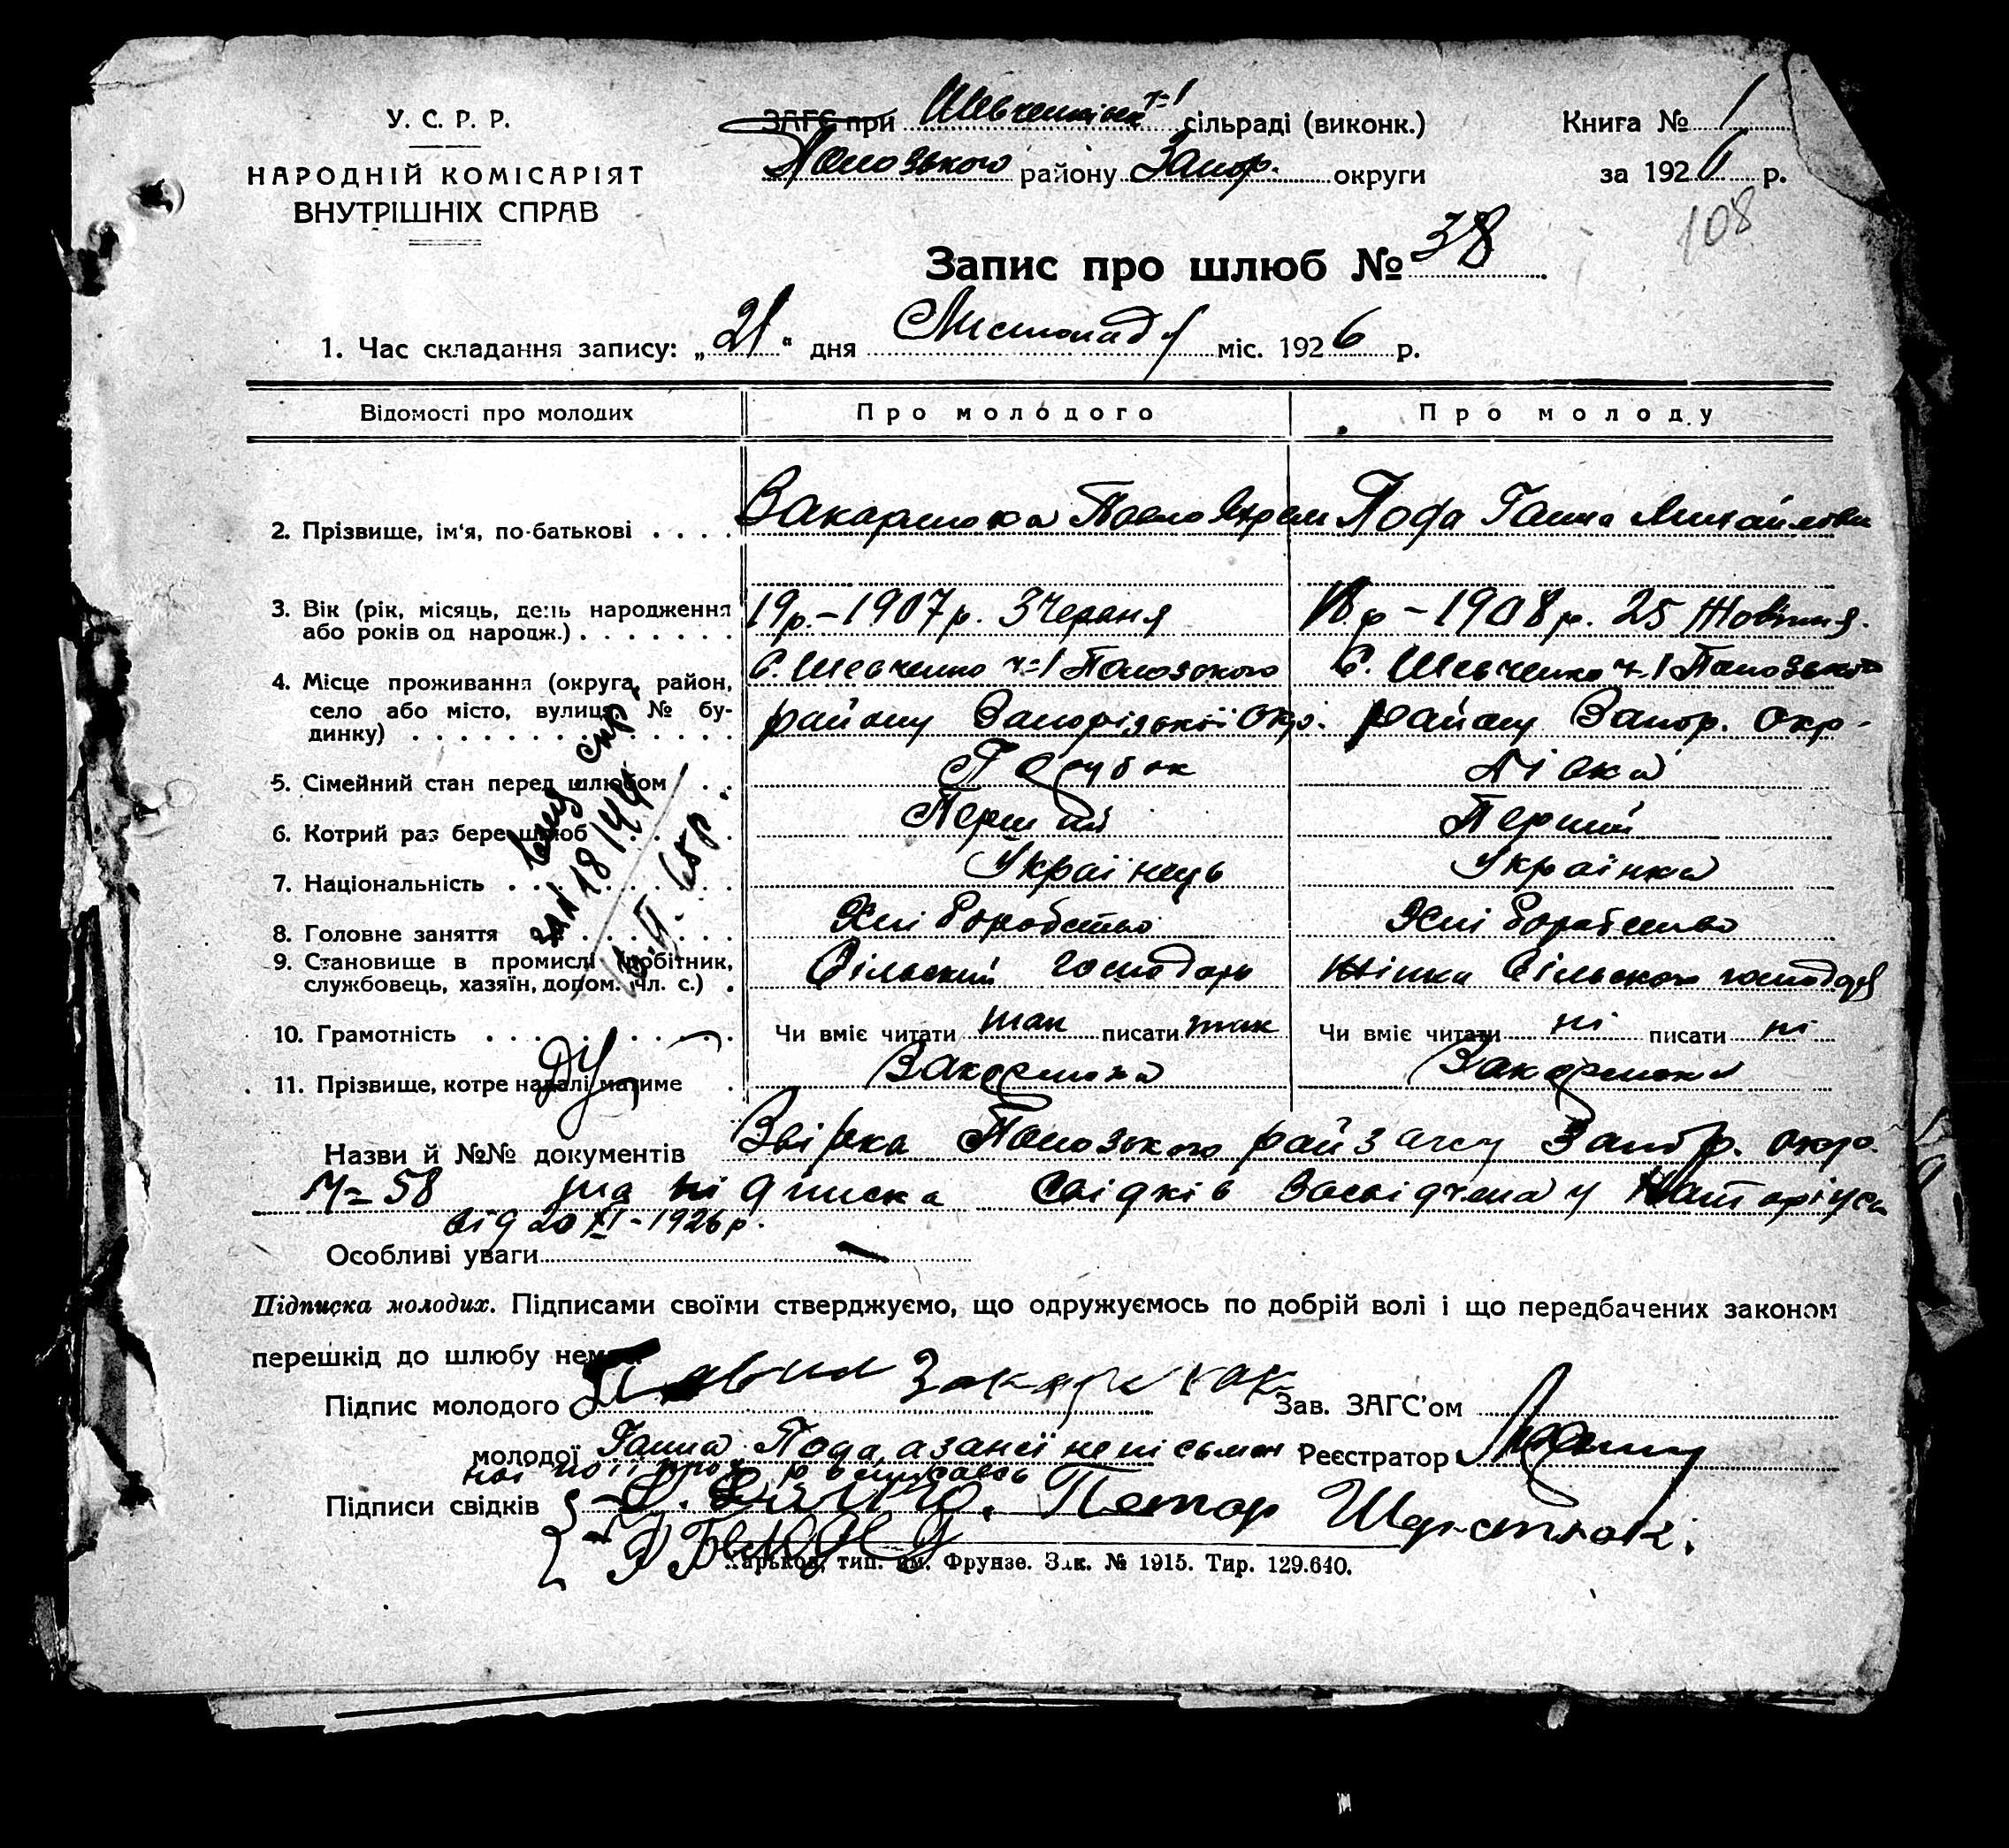 У. С. Р. Р.
НАРОДНІЙ КОМІСАРІЯТ
ВНУТРІШНІХ СПРАВ
ЗАГС при Шевченківськ ч=1 сільраді (виконк.)
Пологзького району Запор. округи
Книга № 1
за 1926 р.
108
Запис про шлюб № 38
1. Час складання запису: „21“ дня Листопаду міс. 1926 р.
Відомості про молодих Про молодого Про молоду
2. Прізвище, ім‘я, по-батькові . . . . Закарлюка Павло Пода Ганна Михайлівна
3. Вік (рік, місяць, день народження
або років од народж.) . . . . . . . 19 р. – 1907 р. 3 Червня 18 р – 1908 р. 25 Жовтня.
4. Місце проживання (округа, район, С. Шевченко ч=1 Полозького С. Шевченко ч.1 Полозького
село або місто, вулиця, № бу-
динку) . . . . . . . . . . . . . . району Запорізької Окр. району Запор. Окр.
5. Сімейний стан перед шлюбом . . Парубок Дівка
6. Котрий раз бере шлюб Перший Перший
7. Національність . . . . . . . . . Українець Українка
8. Головне заняття . . . . . . . . Хліборобство Хліборобство
9. Становище в промислі (робітник,
службовець, хазяїн, допом. чл. с.) . Сільский господарь Жінка сільского господаря
10. Грамотність . . . . . . . . . . Чи вміє читати так писати так Чи вміє читати ні писати ні
11. Прізвище, котре надалі матиме . Закарлюка Закарлюка
Назви й №№ документів Звірка Полозького райзагсу Запор. окр.
ч= 58 підписка свідків засвідчена у Натаріуса
від 20 XI - 1926 р.
Особливі уваги —
Підписка молодих. Підписами своїми стверджуємо, що одружуємось по добрій волі і що передбачених законом
перешкід до шлюбу нема.
Підпис молодого Закарлюк Зав. ЗАГС’ом
молодої Ганна Пода, а за неї неписьмен Реєстратор
Підписи свідків Петор
Харьков, тип. им. Фрунзе. Зак. № 1915. Тир. 129.640.